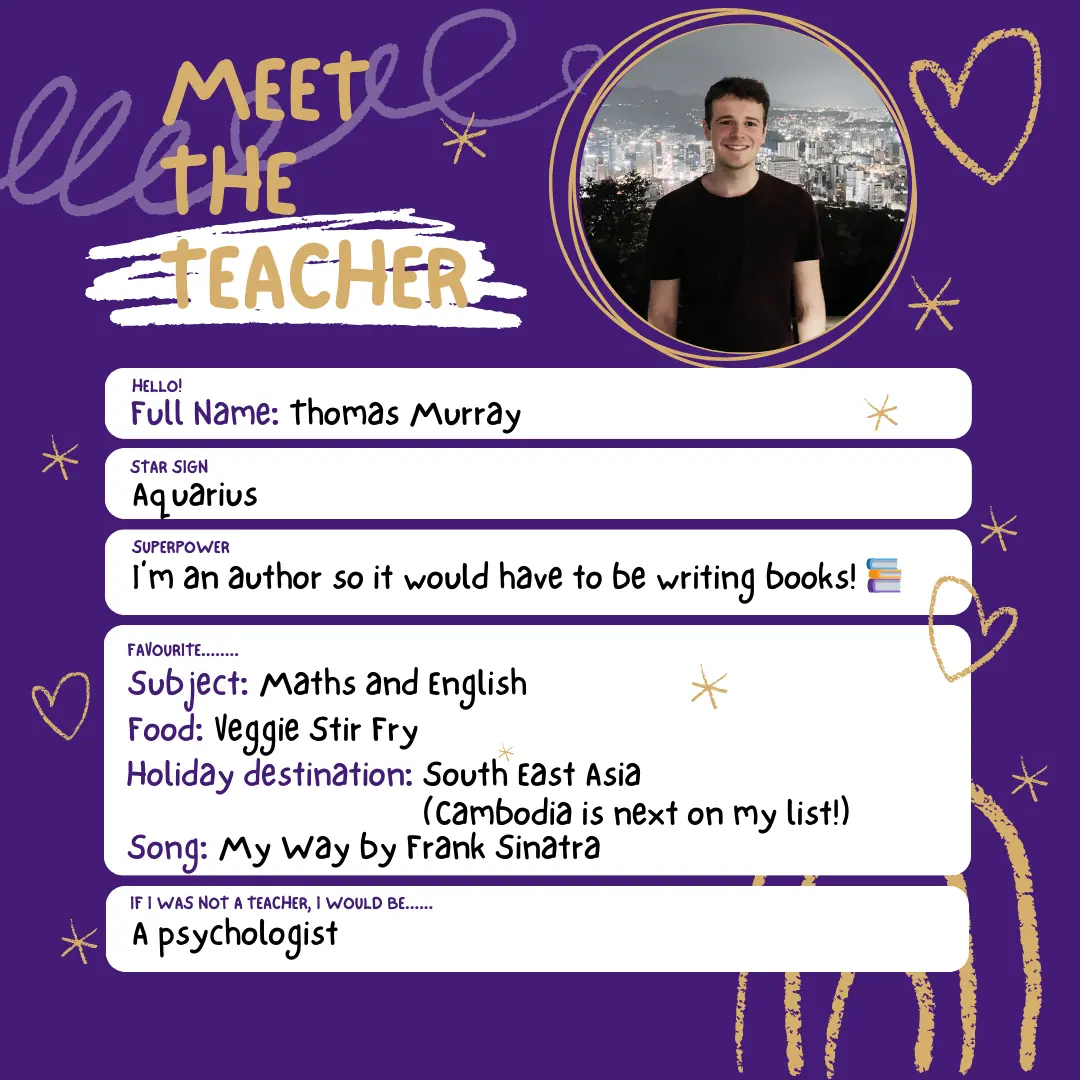 MEET
THE
TEACHER
HELLO!
Full Name: Thomas Murray
STAR SIGN
Aquarius
SUPERPOWER
I'm an author so it would have to be writing books! 📚
FAVOURITE........
Subject: Maths and English
Food: Veggie Stir Fry
Holiday destination: South East Asia
(Cambodia is next on my list!)
Song: My Way by Frank Sinatra
IF I WAS NOT A TEACHER, I WOULD BE......
A psychologist